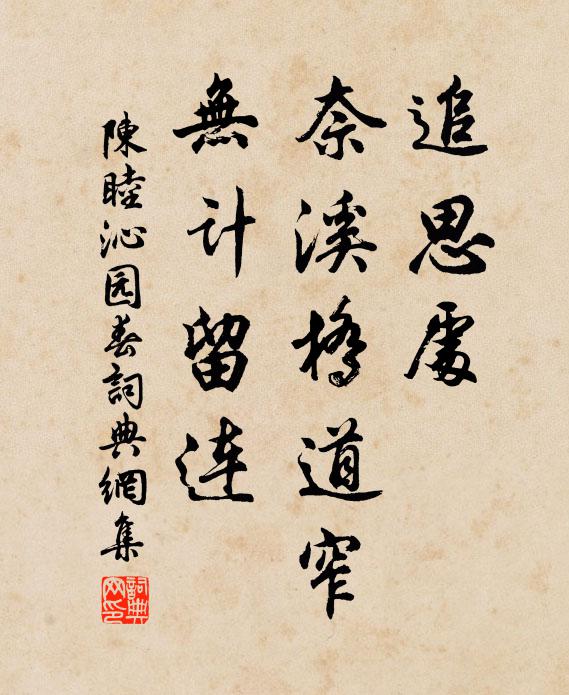 追思處
奈溪橋道窄
無計留連
陳睦沁园春詞典網集
詞典网印